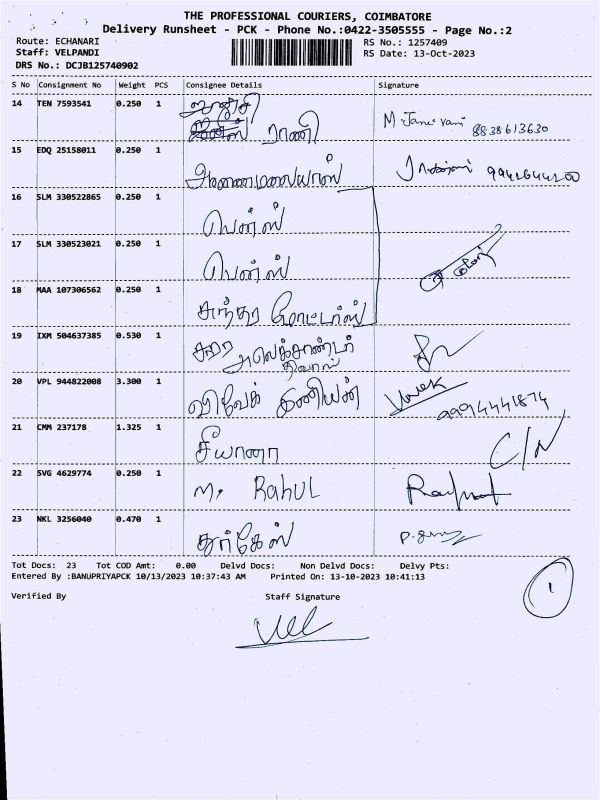 THE PROFESSIONAL COURIERS, COIMBATORE
Delivery Runsheet - PCK - Phone No.:0422-3505555 - Page No.:2
Route: ECHANARI RS No.: 1257409
Staff: VELPANDI RS Date: 13-Oct-2023
DRS No.: DCJB125740902
S No Consignment No Weight PCS Consignee Details Signature
14 TEN 7593541 0.250 1 ராணி 8838613630
15 EDQ 25158011 0.250 1 அண்ணாமலையார்
16 SLM 330522865 0.250 1 பென்ஸ்
17 SLM 330523021 0.250 1 பென்ஸ்
18 MAA 107306562 0.250 1 சுந்தர மோட்டார்ஸ்
19 IXM 504637385 0.530 1 அலெக்சாண்டர்
20 VPL 944822008 3.300 1 விவேக் Vivek
9994441874
21 CMM 237178 1.325 1 C/N
22 SVG 4629774 0.250 1 M. RAHUL
23 NKL 3256040 0.470 1
Tot Docs: 23 Tot COD Amt: 0.00 Delvd Docs: Non Delvd Docs: Delvy Pts:
Entered By :BANUPRIYAPCK 10/13/2023 10:37:43 AM Printed On: 13-10-2023 10:41:13
1
Verified By Staff Signature
Vel